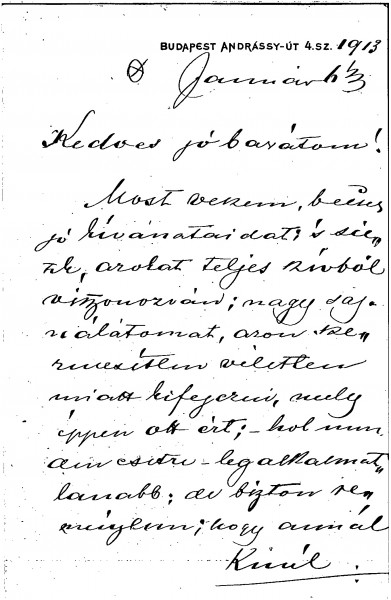 BUDAPEST ANDRÁSSY-ÚT 4.SZ. 1913
Január 6/3
Kedves jó barátom!
Most vekem, becses
jó kívánataidat; és sie„
tek, azokat teljes szívből
viszonozván; nagy saj„
nálátomat, azon sze„
rencsétlen véletlen
miatt kifejezni, mely
éppen ott ért; – hol min
den esetre – legalkalmat„
lanabb; de bizton re„
ménylem; hogy annál